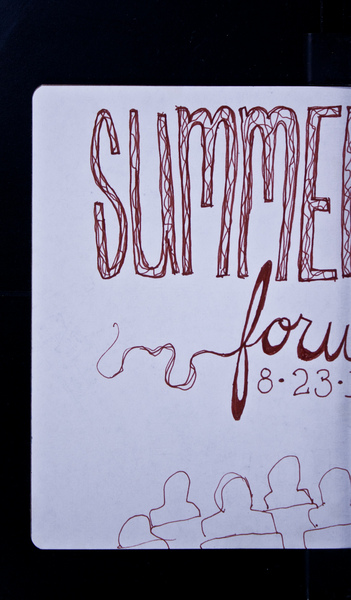 SUMME
foru
8·23·